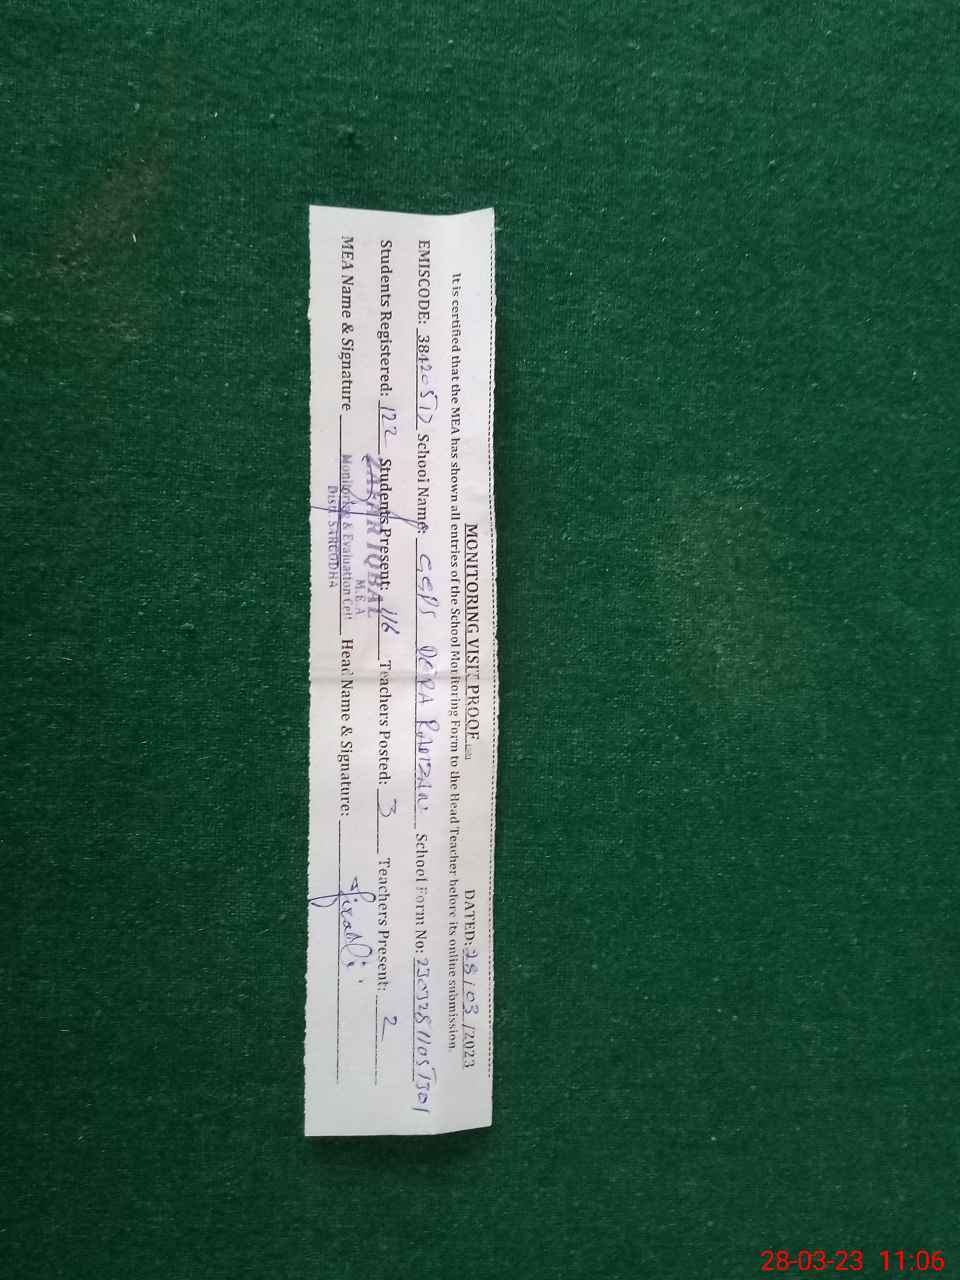 MONITORING VISIT PROOF DATED: 28/03/2023
It is certified that the MEA has shown all entries of the School Monitoring Form to the Head Teacher before its online submission.
EMISCODE: 38420512 School Name: GGPS DERA School Form No:
Students Registered: 122 Students Present: 116 Teachers Posted: 3 Teachers Present: 2
ZAFAR IQBAL
M.E.A
MEA Name & Signature Head Name & Signature:
Monitoring & Evaluation Cell
Distt. SARGODHA
28-03-23 11:06